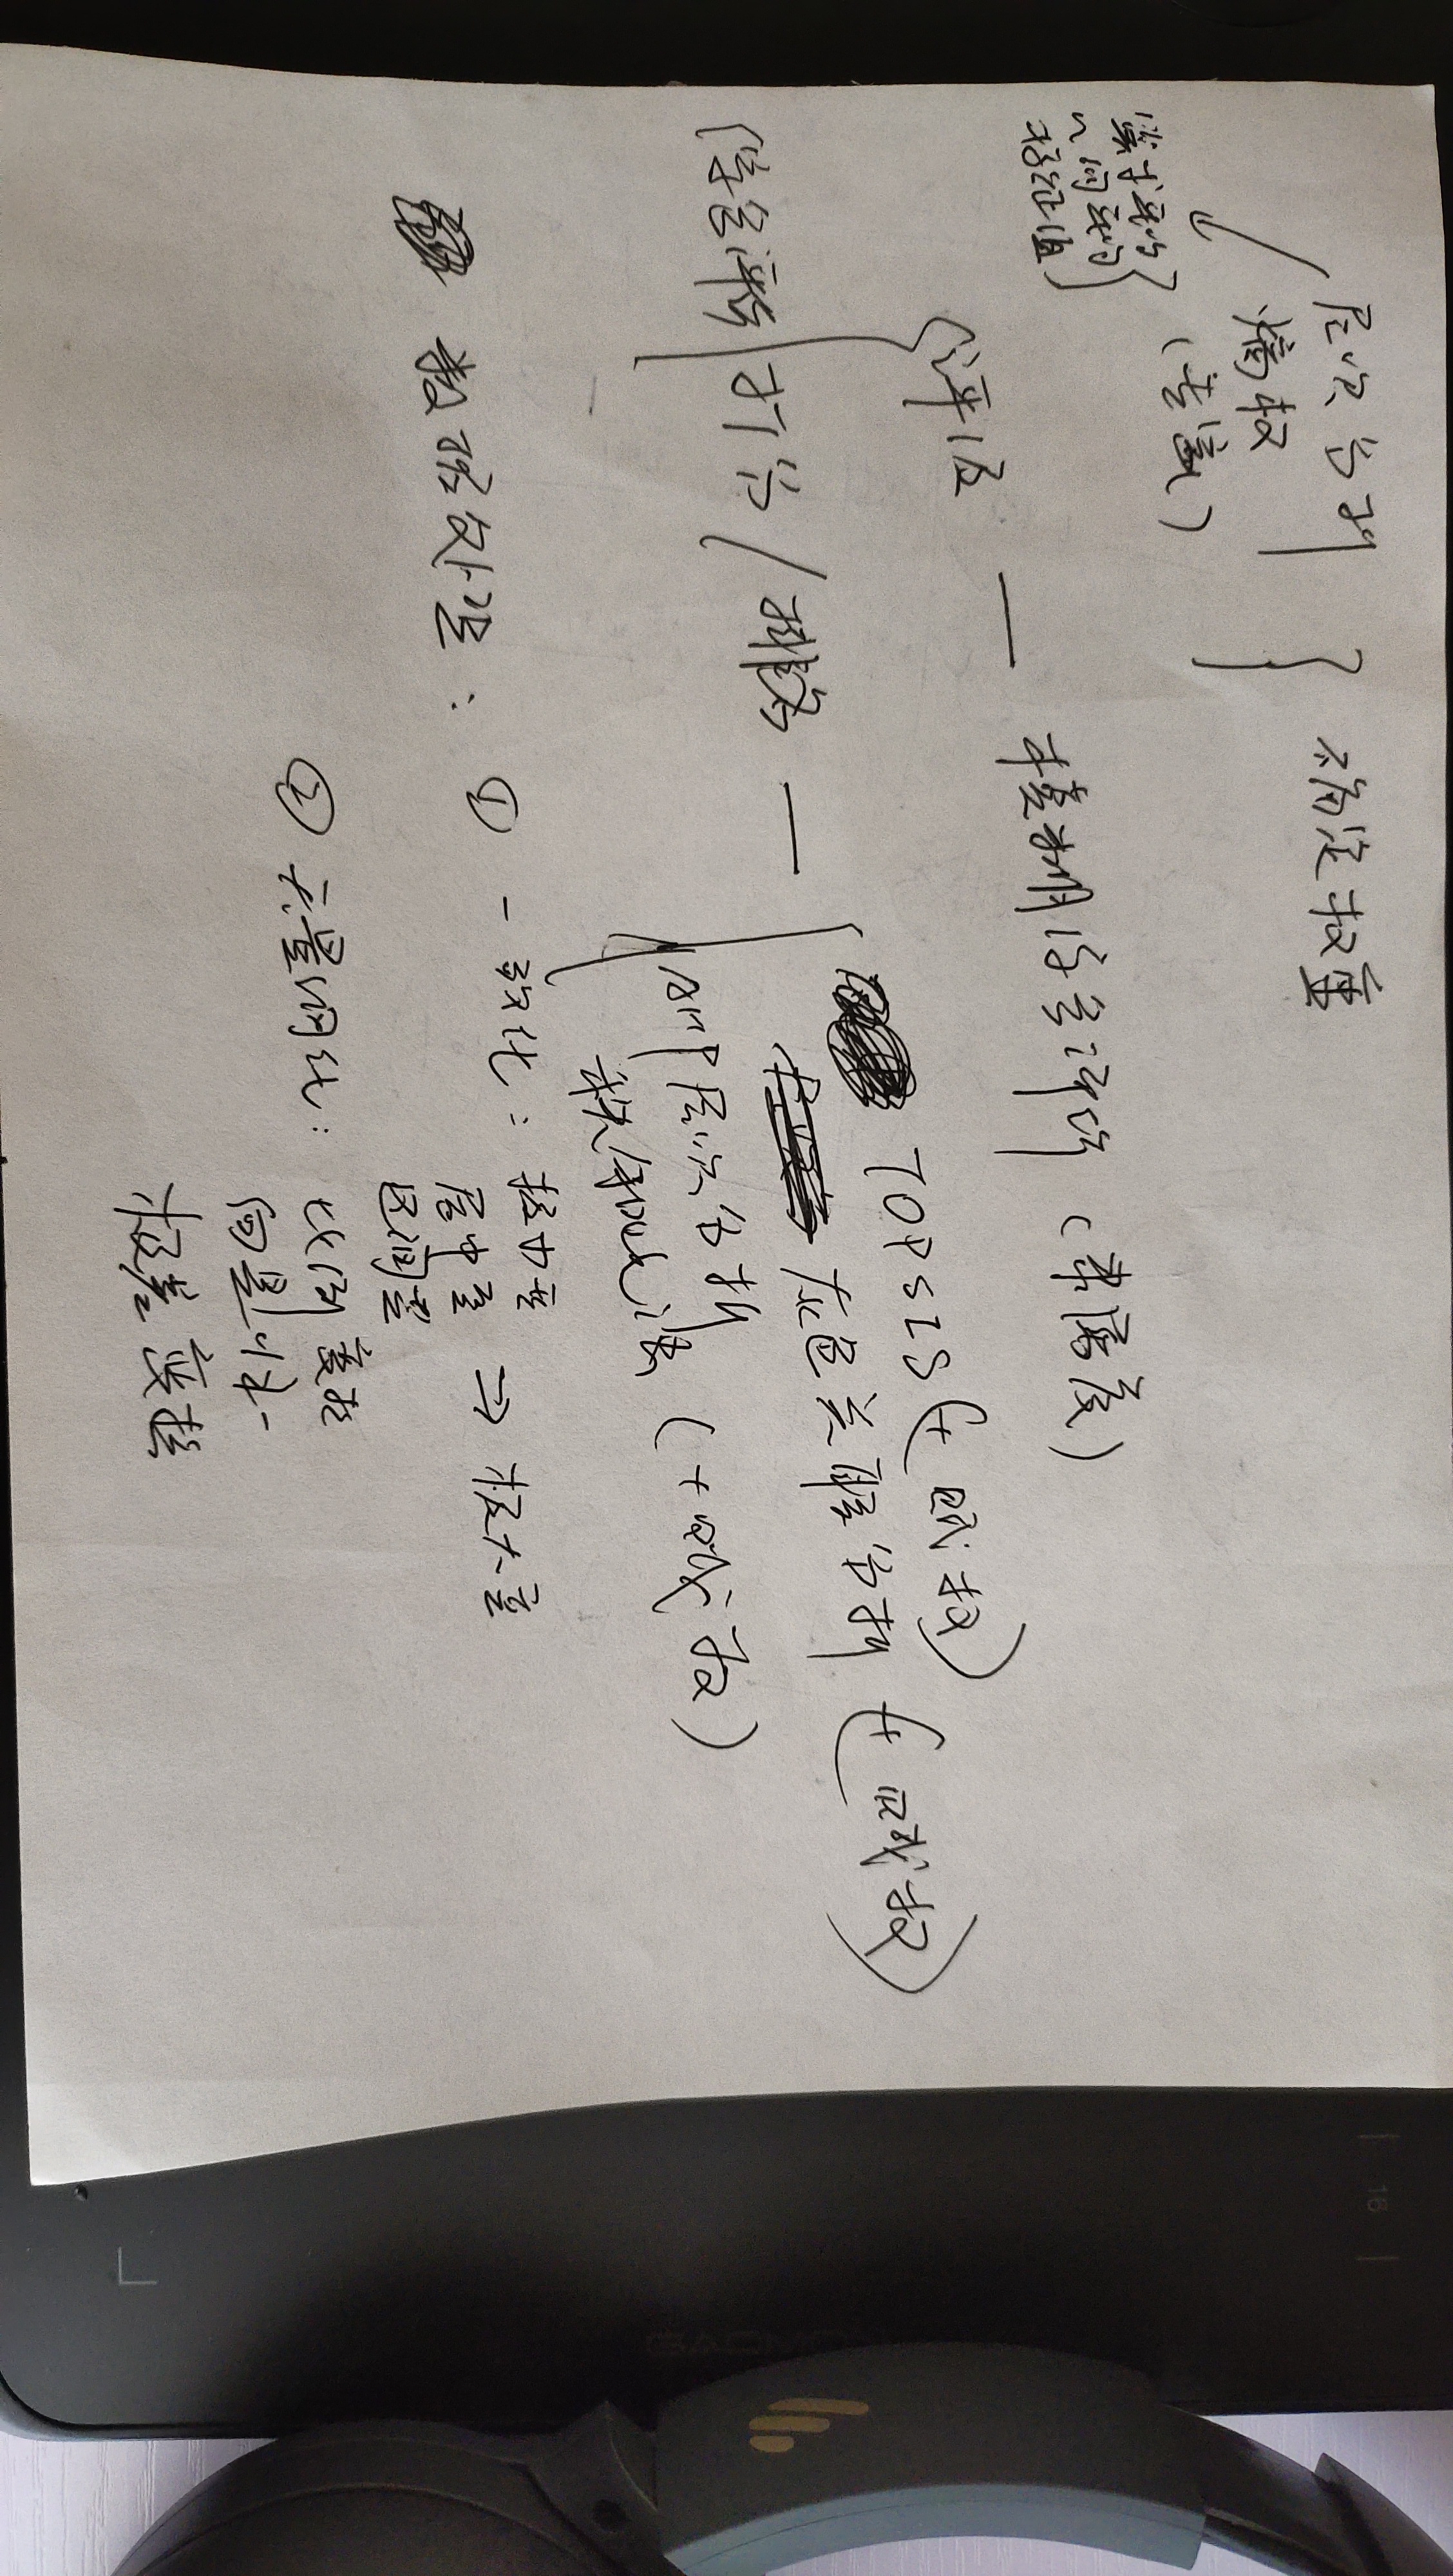 层次分析
熵权
(专家)
} 确定权重
算术平均
几何平均
特征值
综合评价
评级 — 模糊综合评价 (隶属度)
打分 / 排名 —
TOPSIS (+ 赋权)
灰色关联分析 (+ 赋权)
AHP 层次分析
秩和比法 (+ 赋权)
数据处理: ① 一致化: 极小型
居中型 ⇒ 极大型
区间型
② 无量纲化: 比例变换
向量归一
极差变换
16